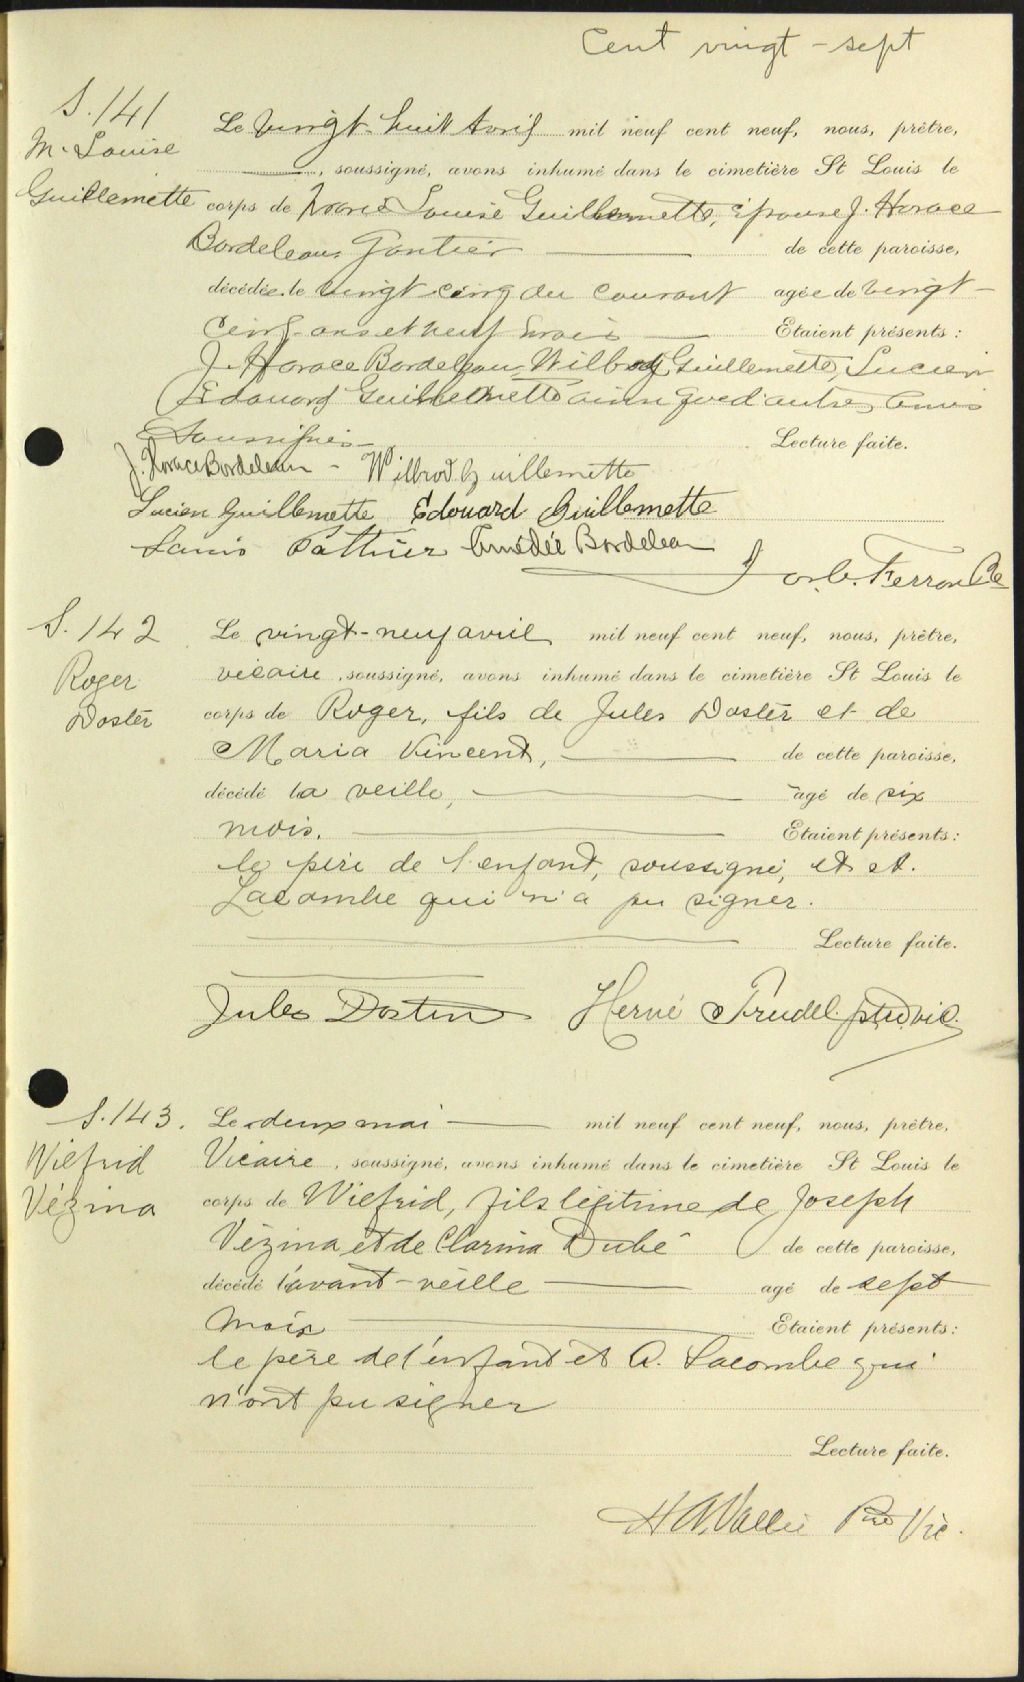 Cent vingt-sept
S. 141
M. Louise
Guillemette
Le vingt-huit Avril mil neuf cent neuf, nous, prêtre,
, soussigné, avons inhumé dans le cimetière St Louis le
corps de Marie Louise Guillemette, épouse J. Horace
Bordeleau Gantier de cette paroisse,
décédée le vingt cinq du courant agée de vingt-
cinq ans et neuf mois Etaient présents:
J. Horace Bordeleau, Wilbrod Guillemette, Lucien
Edouard Guillemette ainsi que d'autres amis
Soussignés Lecture faite.
J. Horace Bordeleau - Wilbrod Guillemette
Lucien Guillemette Edouard Guillemette
Amédée Bordeleau
Ferron Ptre
S. 142
Roger
Dostér
Le vingt-neuf avril mil neuf cent neuf, nous, prêtre,
vicaire, soussigné, avons inhumé dans le cimetière St Louis le
corps de Roger, fils de Jules Dostér et de
Maria Vincent, de cette paroisse,
décédé la veille, agé de six
mois. Etaient présents:
le père de l'enfant, soussigné, et A.
Lacombe qui n'a pu signer.
Lecture faite.
Jules Dostér Hervé Trudel ptre vic.
S. 143.
Wilfrid
Vézina
Le deux mai mil neuf cent neuf, nous, prêtre,
Vicaire, soussigné, avons inhumé dans le cimetière St Louis le
corps de Wilfrid, fils légitime de Joseph
Vézina et de Clarina Dubé de cette paroisse,
décédé l'avant-veille agé de sept
mois Etaient présents:
le père de l'enfant et A. Lacombe qui
n'ont pu signer
Lecture faite.
H A. Vallée Ptre Vic.